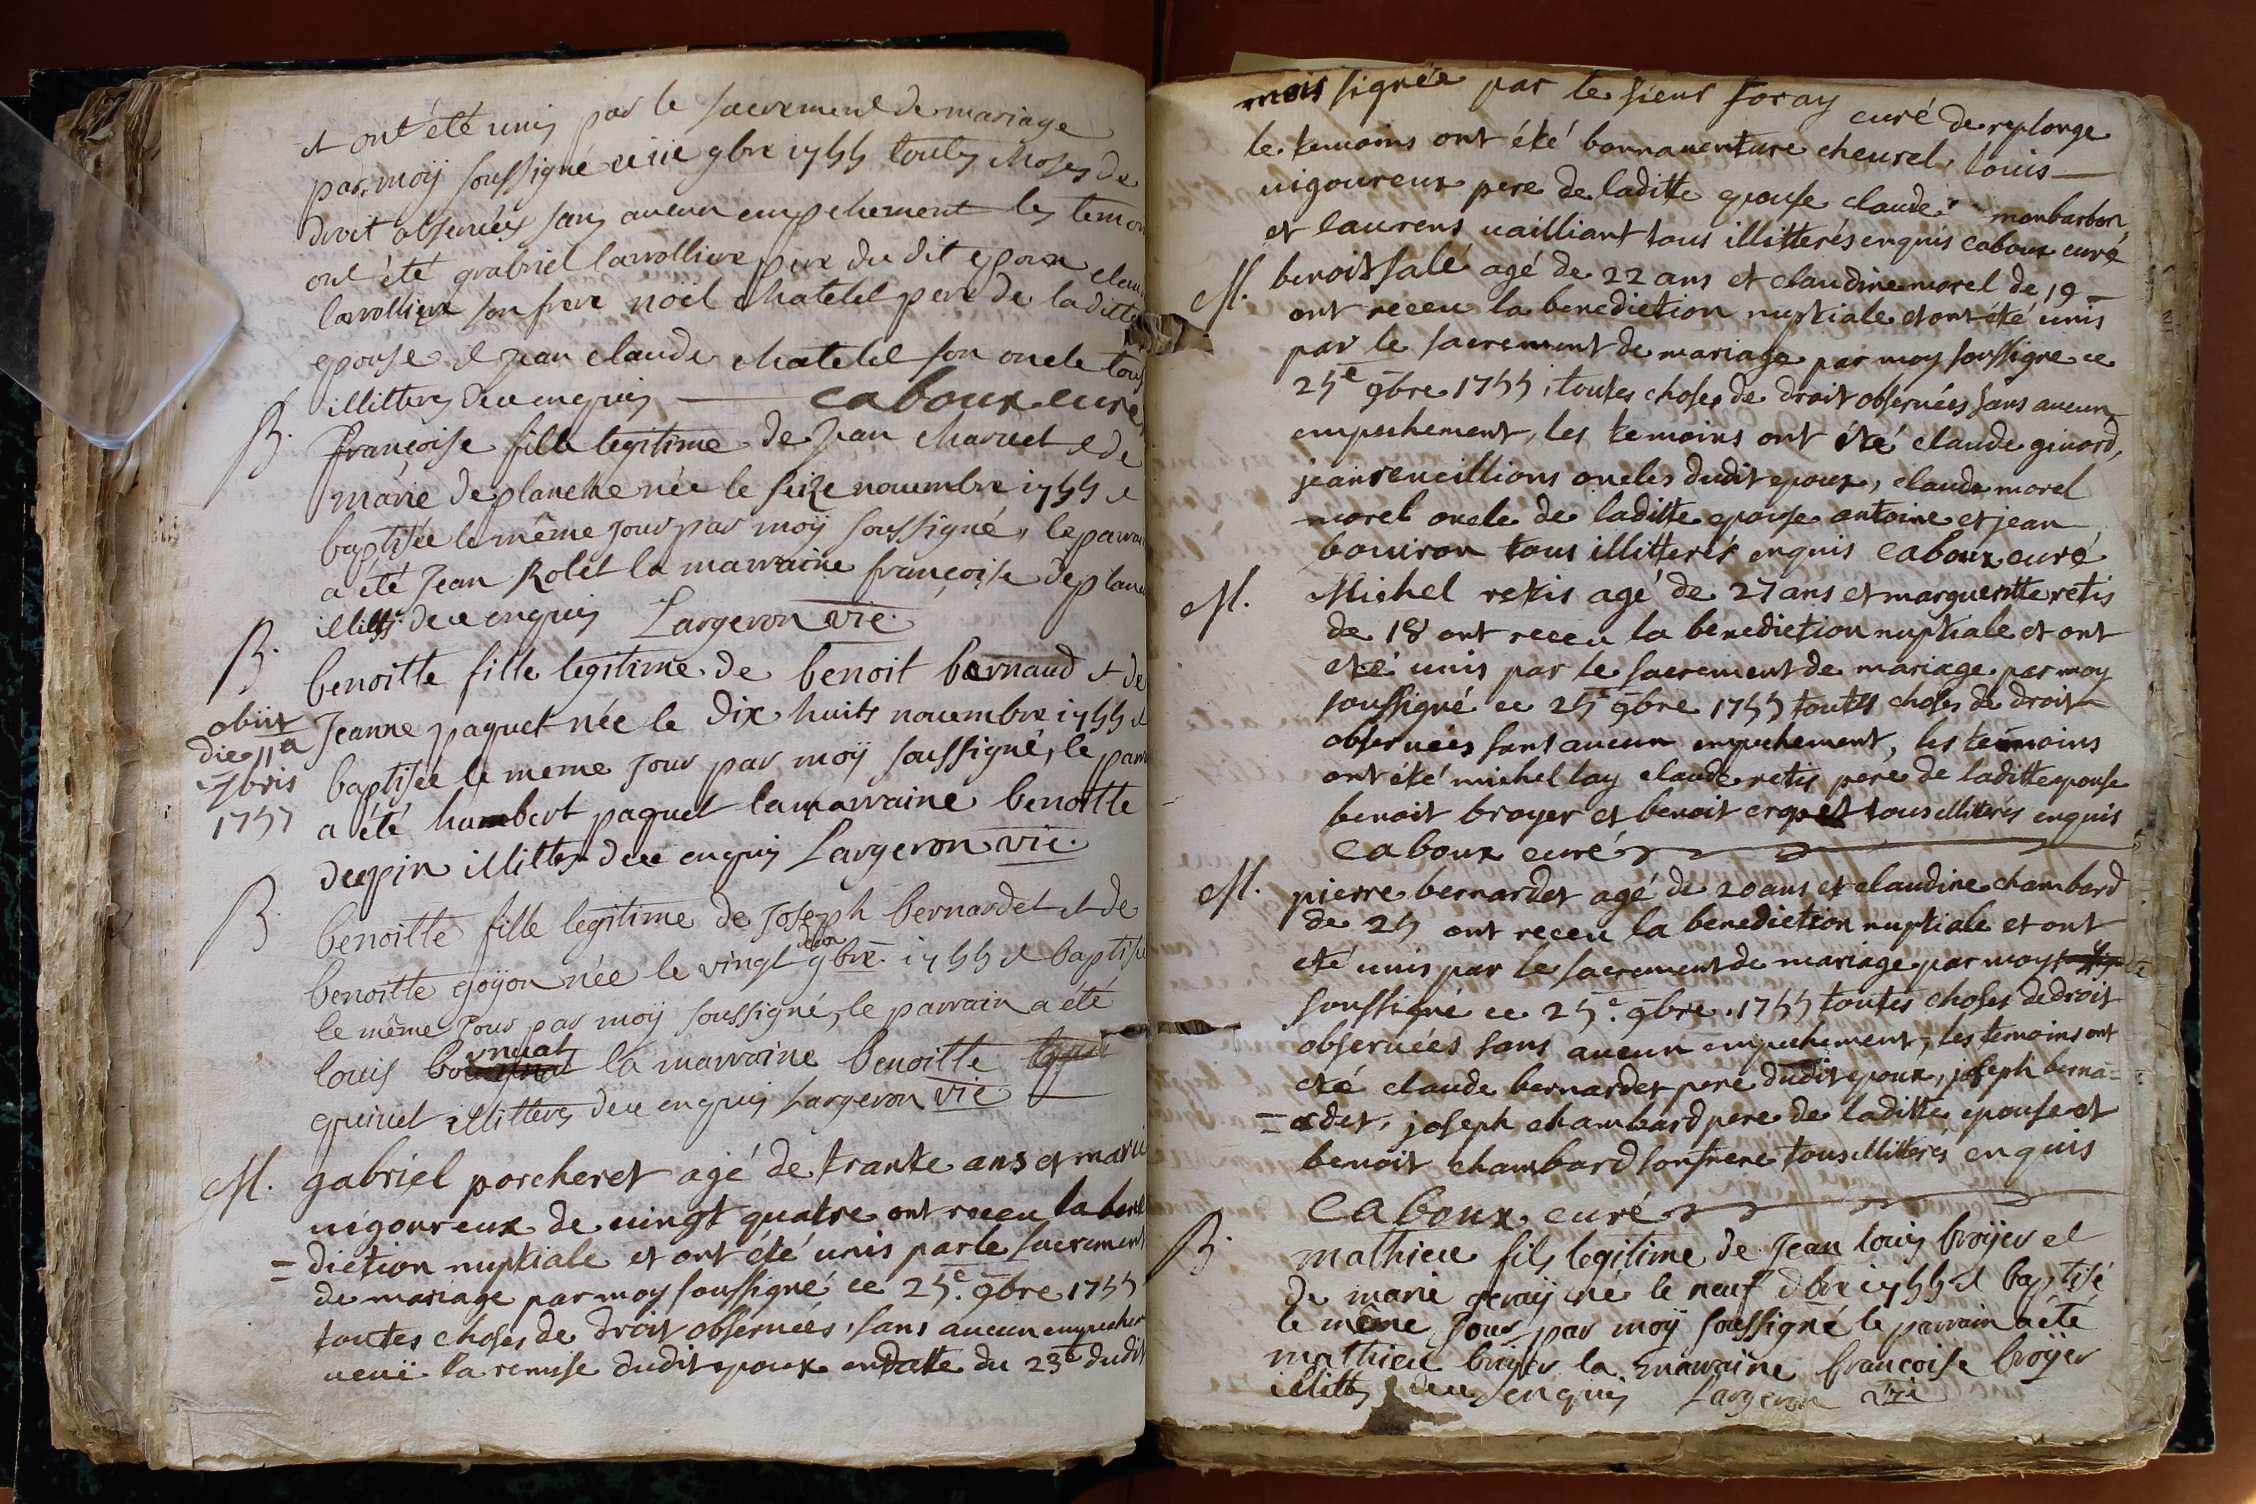 et ont été unis par le sacrement de mariage
par moÿ soussigné ce 9bre 1755 touttes choses de
droit observées sans aucun empechement les temoi
ont été grabriel larrolliere pere du dit epoux clau
larrolliere son frere noël chatelet pere de laditte
epouse et jean claude chatelet son oncle tous
illitterés de ce enquis caboux curé
B. françoise fille legitime de jean charvet et de
marie deplanche née le seize novembre 1755 et
baptisée le même jour par moÿ soussigné, le parrain
a été jean Rolet la marraine françoise deplanc
illitt de ce enquis Largeron vie.
B. benoitte fille legitime de benoit bernaud et de
obiit
die 11a
7bris
1757
jeanne paquet née le dix huits novembre 1755 et
baptisée le meme jour par moÿ soussigné, le parr
a été humbert paquet la marraine benoitte
dupin illitter de ce enquis Largeron vic.
B benoitte fille legitime de joseph bernardet et de
benoitte goÿon née le vingt deux 9bre. 1755 et baptisée
le même jour par moÿ soussigné, le parrain a été
louis la marraine benoitte
quivet illitteres de ce enquis Largeron vic
M. gabriel porcheret agé de trante ans et marie
vigoureux de vingt quatre ont receu la bene
= diction nuptiale et ont été unis par le sacrement
de mariage par moy soussigné ce 25e. 9bre 1755
toutes choses de droit observées, sans aucun empechem
veuë la remise dudit epoux en datte du 23e dudit
mois signée par le sieur foray curé de replonge
le temoins ont été bonnaventure cheurel, louis
vigoureux pere de laditte epouse claude monbarbon
et laurens vailliant tous illitterés enquis caboux curé
M. benoit salé agé de 22 ans et claudine morel de 19
ont receu la benediction nuptiale et ont été unis
par le sacrement de mariage par moy soussigne ce
25e 9bre 1755, toutes choses de droit observées sans aucun
empechement, les temoins ont été claude ginord,
jean reneillions oncles dudit epoux, claude morel
morel oncle de laditte epouse antoine et jean
bouiron tous illitterés enquis caboux curé
M. Michel retis agé de 27 ans et margueritte retis
de 18 ont receu la benediction nuptiale et ont
eté unis par le sacrement de mariage par moy
soussigné ce 25e 9bre 1755 toutes choses de droit
observées sans aucun empechement, les temoins
ont été michel lay claude retis pere de laditte epouse
benoit broyer et benoit tous illitterés enquis
caboux curé
M. pierre bernardet agé de 20 ans et claudine chambard
de 25 ont receu la benediction nuptiale et ont
eté unis par le sacrement de mariage par moy
soussigné ce 25e. 9bre. 1755 toutes choses de droit
observées sans aucun empechement, les temoins ont
eté claude bernardet pere dudit epoux, joseph berna=
=rdet, joseph chambard pere de laditte epouse et
benoit chambard son frere tous illitterés enquis
Caboux curé
B. mathieu fils legitime de jean louis broÿer et
de marie geraÿ né le neuf dbre 1755 et baptisé
le même jour par moÿ soussigné le parrain a été
mathieu broÿer la marraine françoise broÿer
illitt de ce enquis Largeron vic